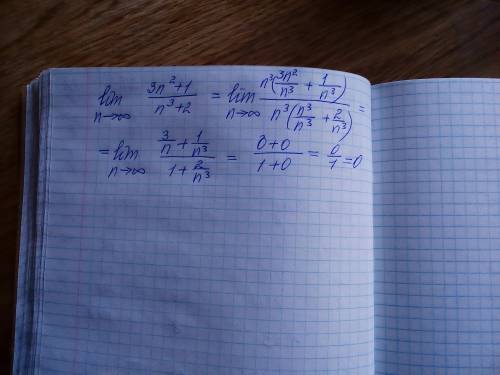 lim n→∞ (3n²+1)/(n³+2) = lim n→∞ n³(3n²/n³ + 1/n³)/n³(n³/n³ + 2/n³) =
= lim n→∞ (3/n + 1/n³)/(1 + 2/n³) = (0+0)/(1+0) = 0/1 = 0